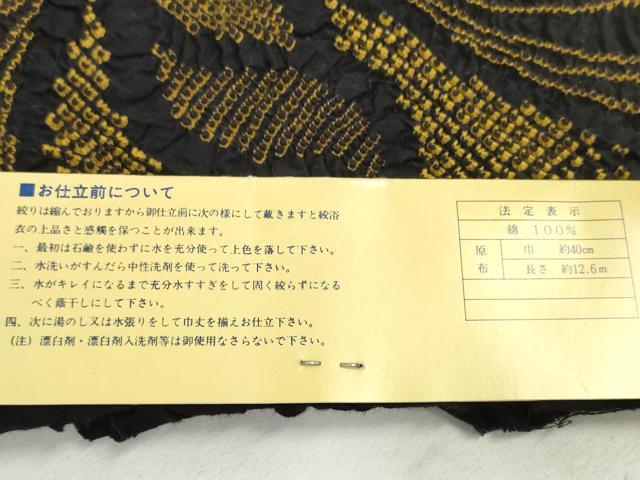 ■お仕立前について
絞りは縮んでおりますから御仕立前に次の様にして戴きますと絞浴
衣の上品さと感觸を保つことが出来ます。
一、最初は石鹸を使わずに水を充分使って上色を落して下さい。
二、水洗いがすんだら中性洗剤を使って洗って下さい。
三、水がキレイになるまで充分水すすぎをして固く絞らずになる
べく蔭干しにして下さい。
四、次に湯のし又は水張りをして巾丈を揃えお仕立下さい。
(注) 漂白剤・漂白剤入洗剤等は御使用なさらないで下さい。
法定表示
綿 100%
原布 巾 約40cm
長さ 約12.6m